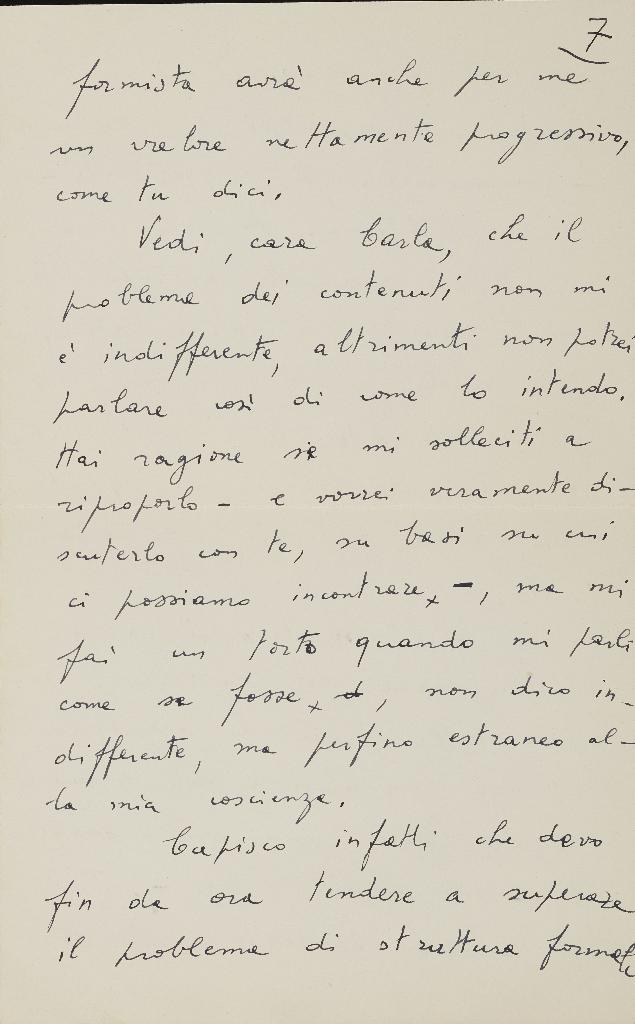 7
formista avrà anche per me
un valore nettamente progressivo,
come tu dici.
Vedi, cara Carla, che il
problema dei contenuti non mi
è indifferente, altrimenti non potrei
parlare così di come lo intendo.
Hai ragione se mi solleciti a
riproporlo – e vorrei veramente di-
scuterlo con te, su basi su cui
ci possiamo incontrare –, ma mi
fai un torto quando mi parli
come se fosse, non dico in-
differente, ma perfino estraneo al-
la mia coscienza.
Capisco infatti che devo
fin da ora tendere a superare
il problema di struttura formale